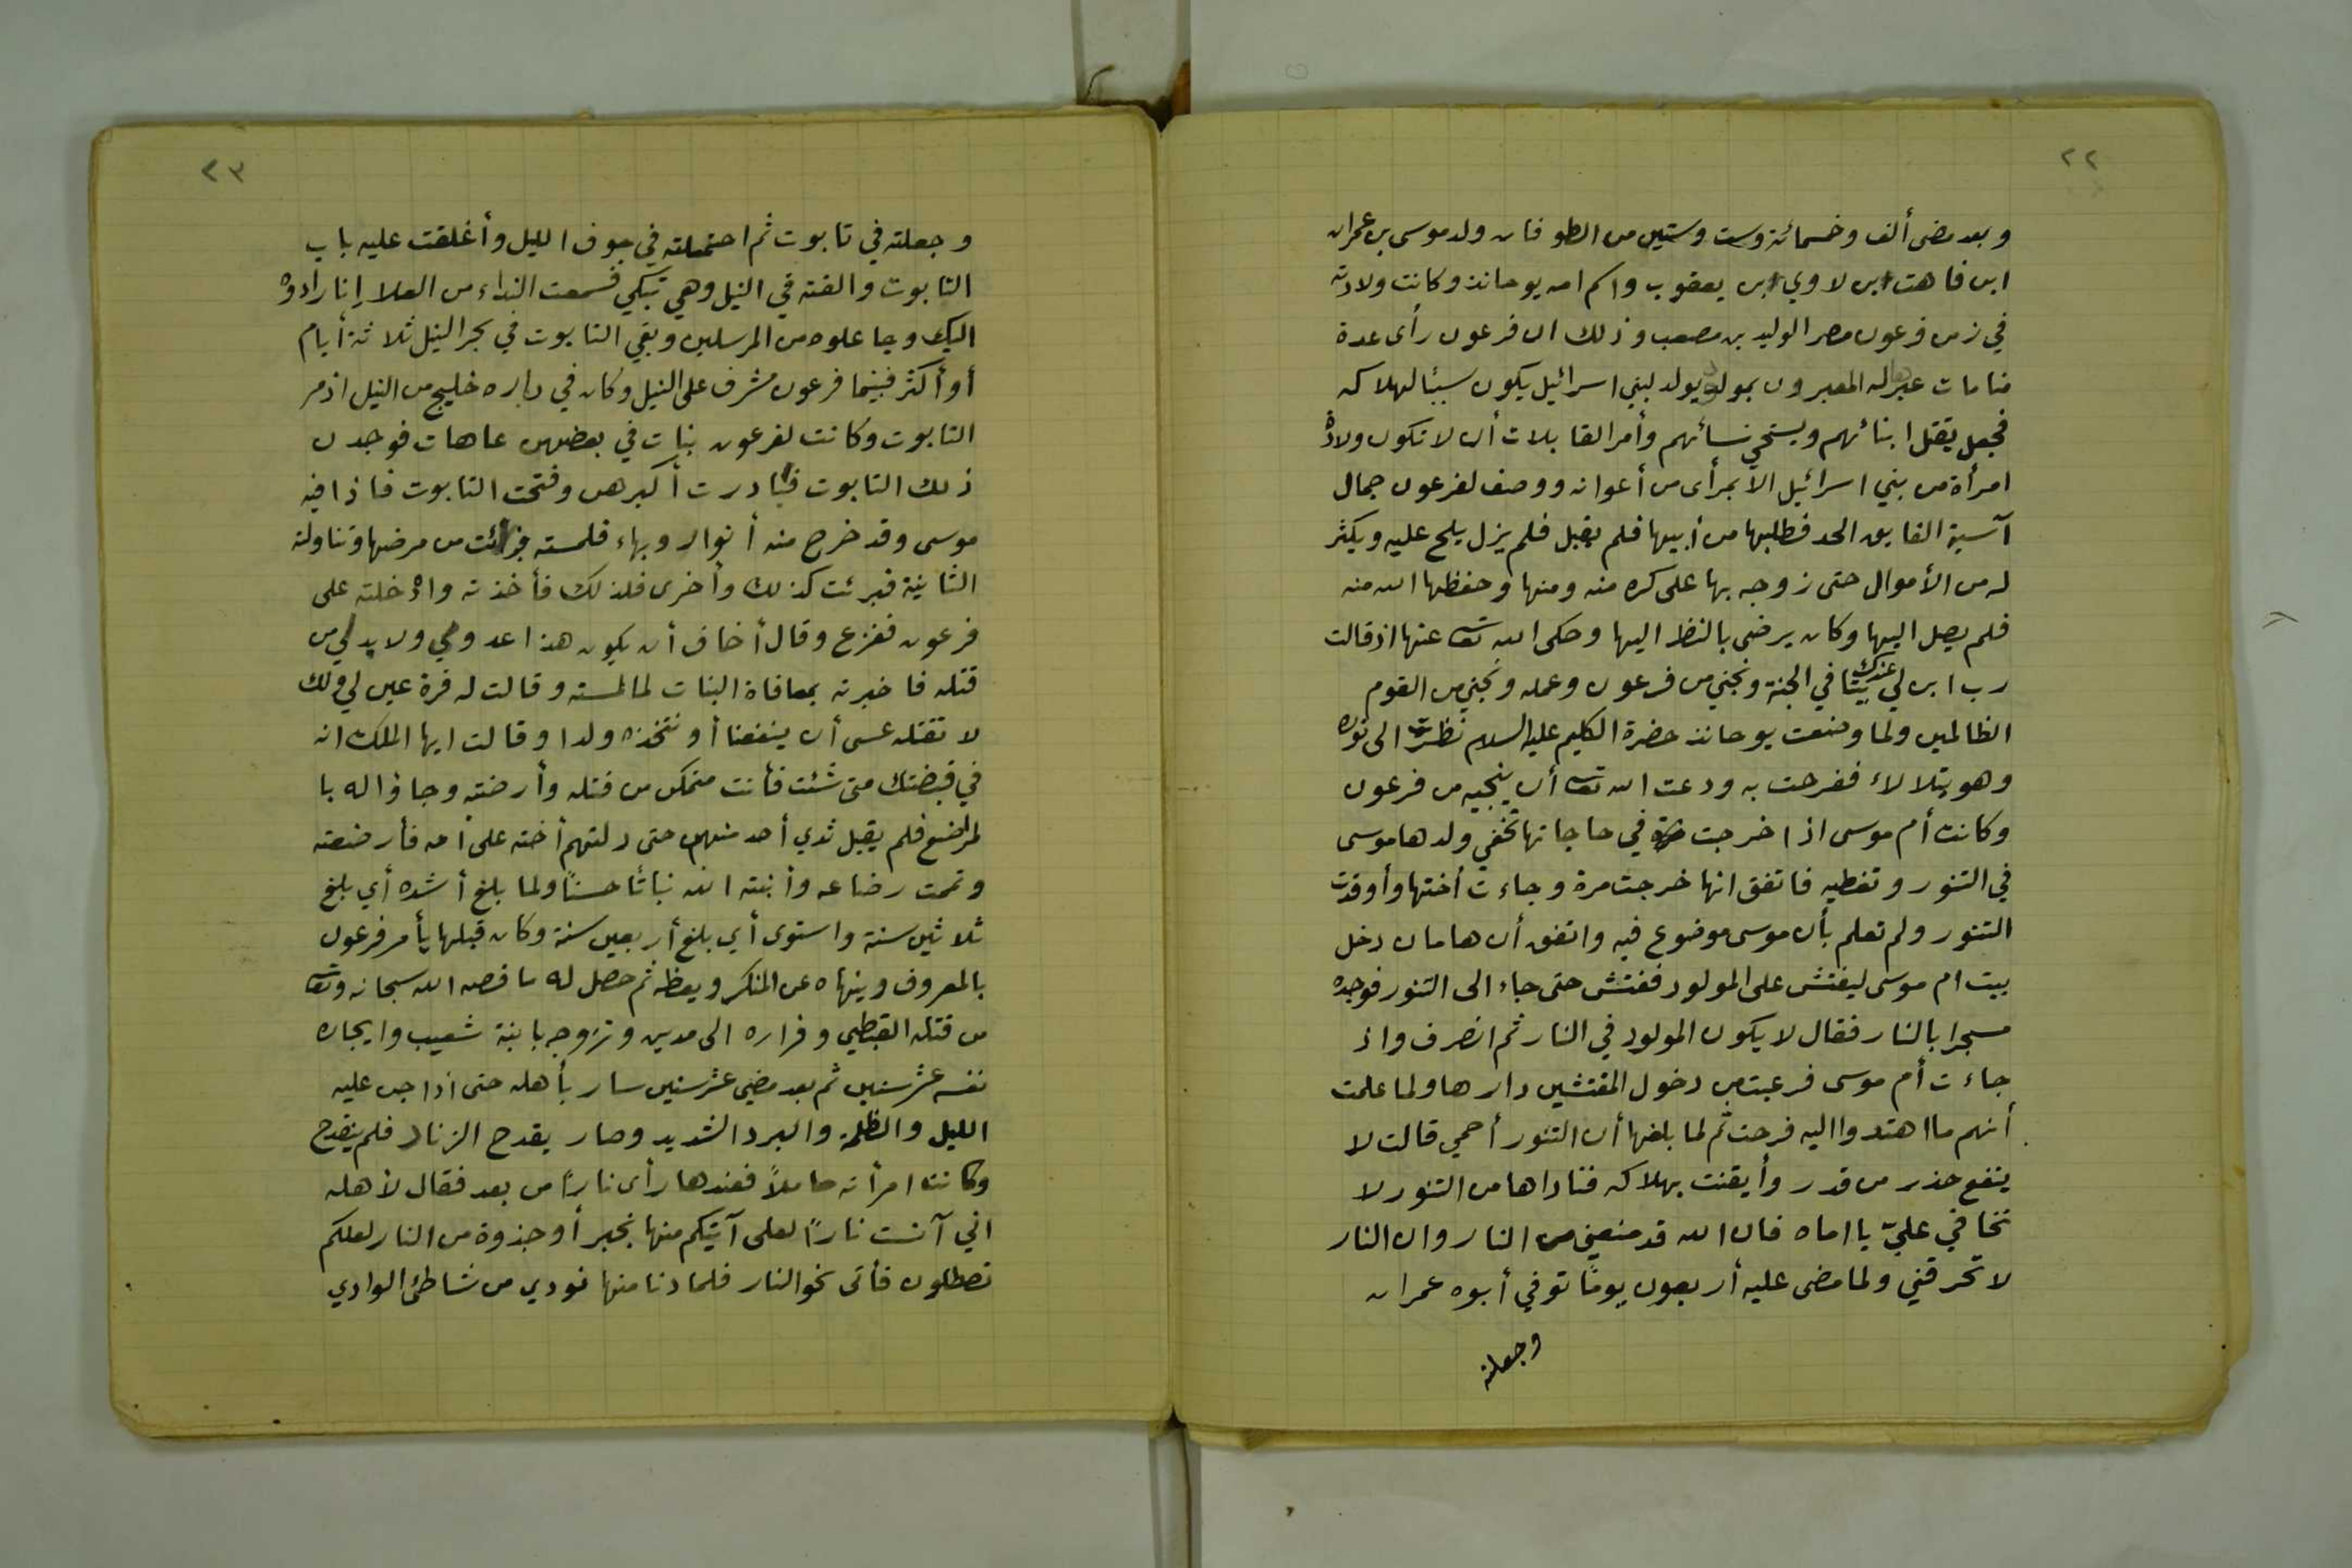 ٢٢
وبعد مضى ألف وخمسمائة وست وستين من الطوفان ولد موسى بن عمران
ابن فاهت ابن لاوي ابن يعقوب واسم امه يوحانذ وكانت ولادته
في زمن فرعون مصر الوليد بن مصعب وذلك ان فرعون رأى عدة
منامات عبرها له المعبرون بمولود يولد لبني اسرائيل يكون سببًا لهلاكه
فجعل يقتل ابنائهم ويستحي نسائهم وأمر القابلات أن لا تكون ولادة
امرأة من بني اسرائيل الا بمرأى من أعوانه ووصف لفرعون جمال
آسية الفايق الحد فطلبها من أبيها فلم يقبل فلم يزل يلح عليه ويكثر
له من الأموال حتى زوجه بها على كره منه ومنها وحفظها الله منه
فلم يصل اليها وكان يرضى بالنظر اليها وحكى الله تعا عنها اذ قالت
رب ابن لي عندك بيتًا في الجنة ونجني من فرعون وعمله ونجني من القوم
الظالمين ولما وضعت يوحانذ حضرة الكليم عليه السلام نظرت الى نوره
وهو يتلالاء ففرحت به ودعت الله تعا أن ينجيه من فرعون
وكانت أم موسى اذا خرجت في حاجاتها تخفي ولدها موسى
في التنور وتغطيه فاتفق انها خرجت مرة وجاءت أختها وأوقدت
التنور ولم تعلم بأن موسى موضوع فيه واتفق أن هامان دخل
بيت ام موسى ليفتش على المولود ففتش حتى جاء الى التنور فوجده
مسجرا بالنار فقال لا يكون المولود في النار ثم انصرف واذ
جاءت أم موسى فرعبت من دخول المفتشين دارها ولما علمت
أنهم ما اهتدوا اليه فرحت ثم لما بلغها أن التنور أحمي قالت لا
ينفع حذر من قدر وأيقنت بهلاكه فناداها من التنور لا
تخافي عليّ يا اماه فان الله قد منعني من النار وان النار
لا تحرقني ولما مضى عليه أربعون يومًا توفي أبوه عمران
وجعلته
٢٣
وجعلته في تابوت ثم احتملته في جوف الليل وأغلقت عليه باب
التابوت والقته في النيل وهي تبكي فسمعت النداء من العلا إنا رادوه
اليك وجاعلوه من المرسلين وبقي التابوت في بحر النيل ثلاثة أيام
أو أكثر فبينما فرعون مشرف على النيل وكان في داره خليج من النيل اذ مر
التابوت وكانت لفرعون بنات في بعضهن عاهات فوجدن
ذلك التابوت فبادرت أكبرهن وفتحت التابوت فاذا فيه
موسى وقد خرج منه أنوار وبهاء فلمسته فبرائت من مرضها وتناولته
الثانية فبرئت كذلك وأخرى فلذلك فأخذته وادخلته على
فرعون ففزع وقال أخاف أن يكون هذا عدو لي ولا بد لي من
قتله فاخبرته بمعافاة البنات لما لمسته وقالت له قرة عين لي ولك
لا تقتله عسى أن ينفعنا أو نتخذه ولدا وقالت ايها الملك انه
في قبضتك متى شئت فأنت متمكن من قتله وأرضته وجاؤا له با
لمراضع فلم يقبل ثدي أحد منهن حتى دلتهم أخته على أمه فأرضعته
وتمت رضاعه وأنبته الله نباتًا حسنًا ولما بلغ أشده أي بلغ
ثلاثين سنة واستوى أي بلغ أربعين سنة وكان قبلها يأمر فرعون
بالمعروف وينهاه عن المنكر ويعظه ثم حصل له ما قصه الله سبحانه وتعا
من قتله القبطي وفراره الى مدين وتزوجه بابنة شعيب وايجاره
نفسه عشر سنين ثم بعد مضي عشر سنين سار بأهله حتى اذا جن عليه
الليل والظلمة والبرد الشديد وصار يقدح الزناد فلم ينقدح
وكانت امرأته حاملًا فعندها رأى نارًا من بعد فقال لأهله
اني آنست نارًا لعلى آتيكم منها بخبر أو جذوة من النار لعلكم
تصطلون فأتى نحو النار فلما دنا منها نودي من شاطئ الوادي